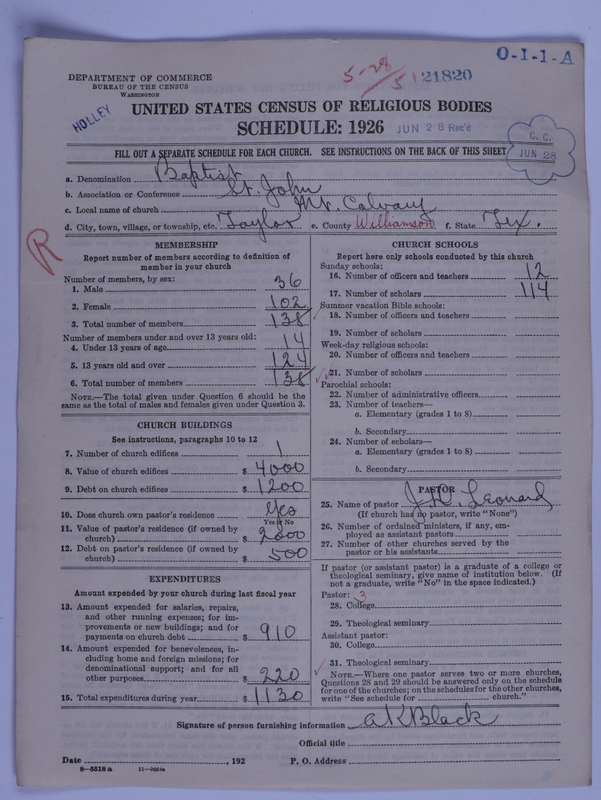 O-I-1-A
5-28
51
21820
DEPARTMENT OF COMMERCE
BUREAU OF THE CENSUS
WASHINGTON
HOLLEY
UNITED STATES CENSUS OF RELIGIOUS BODIES
SCHEDULE: 1926
JUN 28 Rec'd
C. C.
JUN 28
FILL OUT A SEPARATE SCHEDULE FOR EACH CHURCH. SEE INSTRUCTIONS ON THE BACK OF THIS SHEET
a. Denomination Baptist
b. Association or Conference St. John
c. Local name of church Mt. Calvary
d. City, town, village, or township, etc. Taylor e. County Williamson f. State Tex.
R
MEMBERSHIP
Report number of members according to definition of
member in your church
Number of members, by sex:
1. Male 36
2. Female 102
3. Total number of members 138
Number of members under and over 13 years old:
4. Under 13 years of age 14
5. 13 years old and over 124
6. Total number of members 138
NOTE.—The total given under Question 6 should be the
same as the total of males and females given under Question 3.
CHURCH BUILDINGS
See instructions, paragraphs 10 to 12
7. Number of church edifices 1
8. Value of church edifices $ 4000
9. Debt on church edifices $ 1200
10. Does church own pastor's residence Yes
Yes or No
11. Value of pastor's residence (if owned by
church) $ 2000
12. Debt on pastor's residence (if owned by
church) $ 500
EXPENDITURES
Amount expended by your church during last fiscal year
13. Amount expended for salaries, repairs,
and other running expenses; for im-
provements or new buildings; and for
payments on church debt $ 910
14. Amount expended for benevolences, in-
cluding home and foreign missions; for
denominational support; and for all
other purposes $ 220
15. Total expenditures during year $ 1130
CHURCH SCHOOLS
Report here only schools conducted by this church
Sunday schools:
16. Number of officers and teachers 12
17. Number of scholars 114
Summer vacation Bible schools:
18. Number of officers and teachers
19. Number of scholars
Week-day religious schools:
20. Number of officers and teachers
21. Number of scholars
Parochial schools:
22. Number of administrative officers
23. Number of teachers—
a. Elementary (grades 1 to 8)
b. Secondary
24. Number of scholars—
a. Elementary (grades 1 to 8)
b. Secondary
PASTOR
25. Name of pastor J. R. Leonard
(If church has no pastor, write "None")
26. Number of ordained ministers, if any, em-
ployed as assistant pastors
27. Number of other churches served by the
pastor or his assistants
If pastor (or assistant pastor) is a graduate of a college or
theological seminary, give name of institution below. (If
not a graduate, write "No" in the space indicated.)
Pastor: 3
28. College
29. Theological seminary
Assistant pastor:
30. College
31. Theological seminary
NOTE.—Where one pastor serves two or more churches,
Questions 28 and 29 should be answered only on the schedule
for one of the churches; on the schedules for the other churches,
write "See schedule for church."
Signature of person furnishing information A K Black
Official title
Date , 192 P. O. Address
8-5518 a 11-9054a